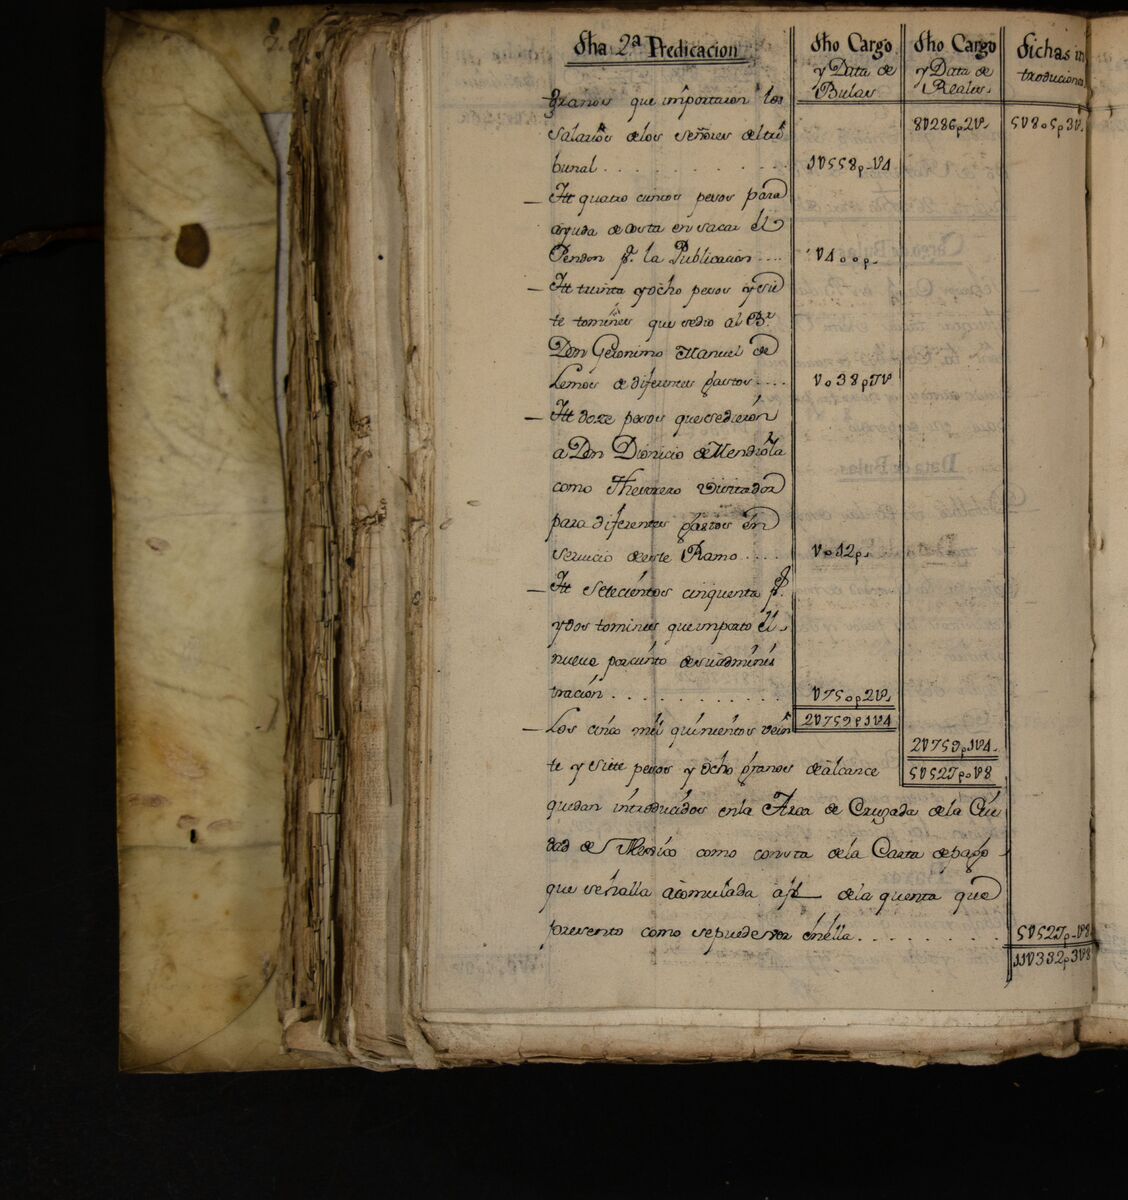 Dha 2ª Predicacion
Dho Cargo
y Data de
Bulas
Dho Cargo
y Data de
Reales
Dichas in
troduciones
granos que importaron los
8U286p2U
5U805p3U
salarios delos señores deltri
bunal
1U558p-U4
Itt quatro cientos pesos para
ayuda de costa en sacar el
Pendon pª la Publicacion
U400p
Itt treinta y ocho pesos y sie
te tomines que sedio al Br
Don Geronimo Manuel de
Lemos de diferentes gastos
U038p7U
Itt doze pesos que sedieron
a Don Dionicio de Mendiola
como Thesorero Visitador
para diferentes gastos en
servicio deeste Ramo
U012p
Itt setecientos cinquenta pˢ
y dos tomines que importo el
nueve porciento desuadminis
tracion
U750p2U
2U759p1U4
Los cinco mil quinientos vein
2U759p1U4
te y siete pesos y ocho granos de alcance
5U527poU8
quedan introducidos enla Arca de Cruzada de la Ciu
dad de Mexico como consta dela Carta de pago
que sehalla acomulada afˢ dela quenta que
presento como sepuede ver enella
5U527p-U8
11U332p3U8